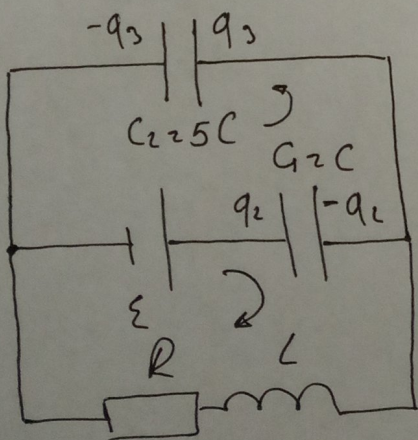 -q3 q3
C2=5C
C1=C
q2 -q2
ε
R L